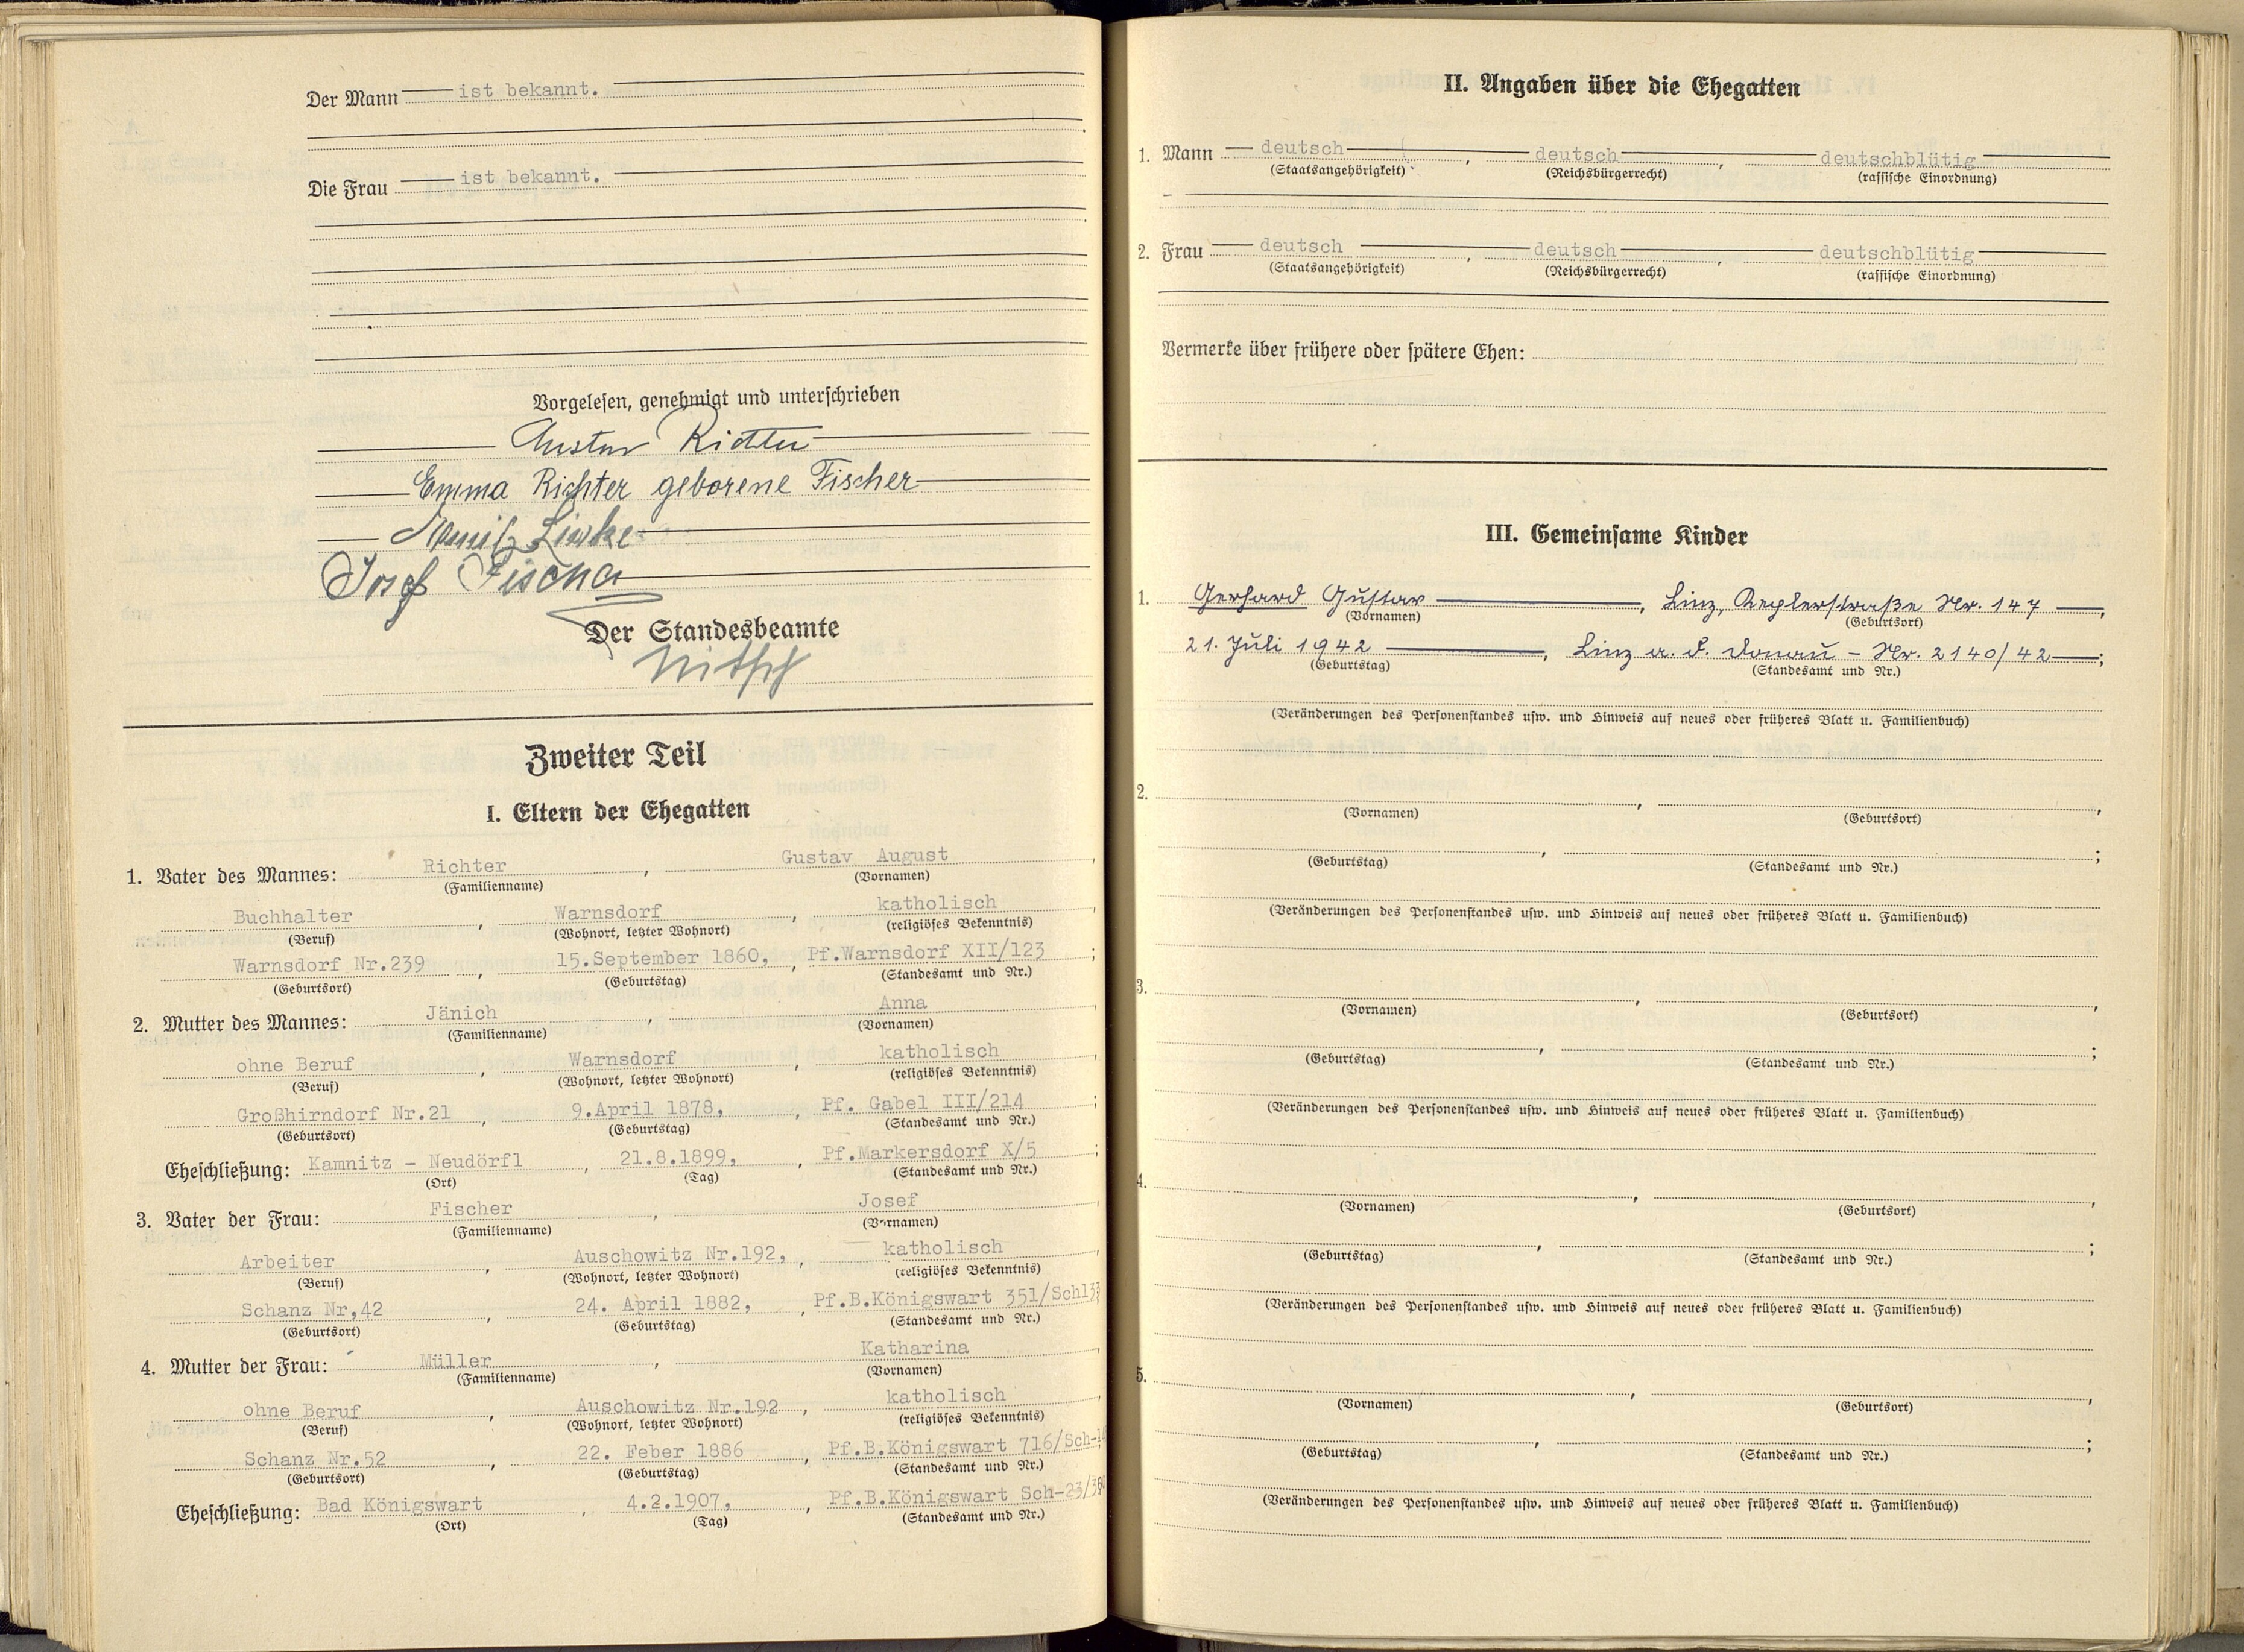 Der Mann ist bekannt.
Die Frau ist bekannt.
Vorgelesen, genehmigt und unterschrieben
Gustav Richter
Emma Richter geborene Fischer
Linke
Josef Fischer
Der Standesbeamte
Nitsch
Zweiter Teil
I. Eltern der Ehegatten
1. Vater des Mannes: Richter, Gustav August
(Familienname) (Vornamen)
Buchhalter, Warnsdorf, katholisch,
(Beruf) (Wohnort, letzter Wohnort) (religiöses Bekenntnis)
Warnsdorf Nr.239, 15.September 1860, , Pf.Warnsdorf XII/123;
(Geburtsort) (Geburtstag) (Standesamt und Nr.)
2. Mutter des Mannes: Jänich, Anna,
(Familienname) (Vornamen)
ohne Beruf, Warnsdorf, katholisch,
(Beruf) (Wohnort, letzter Wohnort) (religiöses Bekenntnis)
Großhirndorf Nr.21, 9.April 1878, , Pf. Gabel III/214;
(Geburtsort) (Geburtstag) (Standesamt und Nr.)
Eheschließung: Kamnitz - Neudörfl, 21.8.1899, , Pf.Markersdorf X/5;
(Ort) (Tag) (Standesamt und Nr.)
3. Vater der Frau: Fischer, Josef,
(Familienname) (Vornamen)
Arbeiter, Auschowitz Nr.192, , katholisch,
(Beruf) (Wohnort, letzter Wohnort) (religiöses Bekenntnis)
Schanz Nr,42, 24. April 1882, , Pf.B.Königswart
(Geburtsort) (Geburtstag) (Standesamt und Nr.)
4. Mutter der Frau: Müller, Katharina,
(Familienname) (Vornamen)
ohne Beruf, Auschowitz Nr.192, katholisch,
(Beruf) (Wohnort, letzter Wohnort) (religiöses Bekenntnis)
Schanz Nr.52, 22. Feber 1886, Pf.B.Königswart
(Geburtsort) (Geburtstag) (Standesamt und Nr.)
Eheschließung: Bad Königswart, 4.2.1907, , Pf.B.Königswart
(Ort) (Tag) (Standesamt und Nr.)
II. Angaben über die Ehegatten
1. Mann deutsch, deutsch, deutschblütig
(Staatsangehörigkeit) (Reichsbürgerrecht) (rassische Einordnung)
2. Frau deutsch, deutsch, deutschblütig
(Staatsangehörigkeit) (Reichsbürgerrecht) (rassische Einordnung)
Vermerke über frühere oder spätere Ehen:
III. Gemeinsame Kinder
1. Gerhard Gustav, Linz, Keplerstraße Nr. 147,
(Vornamen) (Geburtsort)
21. Juli 1942, Linz a. d. Donau - Nr. 2140/42;
(Geburtstag) (Standesamt und Nr.)
(Veränderungen des Personenstandes usw. und Hinweis auf neues oder früheres Blatt u. Familienbuch)
2. , ,
(Vornamen) (Geburtsort)
, ;
(Geburtstag) (Standesamt und Nr.)
(Veränderungen des Personenstandes usw. und Hinweis auf neues oder früheres Blatt u. Familienbuch)
3. , ,
(Vornamen) (Geburtsort)
, ;
(Geburtstag) (Standesamt und Nr.)
(Veränderungen des Personenstandes usw. und Hinweis auf neues oder früheres Blatt u. Familienbuch)
4. , ,
(Vornamen) (Geburtsort)
, ;
(Geburtstag) (Standesamt und Nr.)
(Veränderungen des Personenstandes usw. und Hinweis auf neues oder früheres Blatt u. Familienbuch)
5. , ,
(Vornamen) (Geburtsort)
, ;
(Geburtstag) (Standesamt und Nr.)
(Veränderungen des Personenstandes usw. und Hinweis auf neues oder früheres Blatt u. Familienbuch)